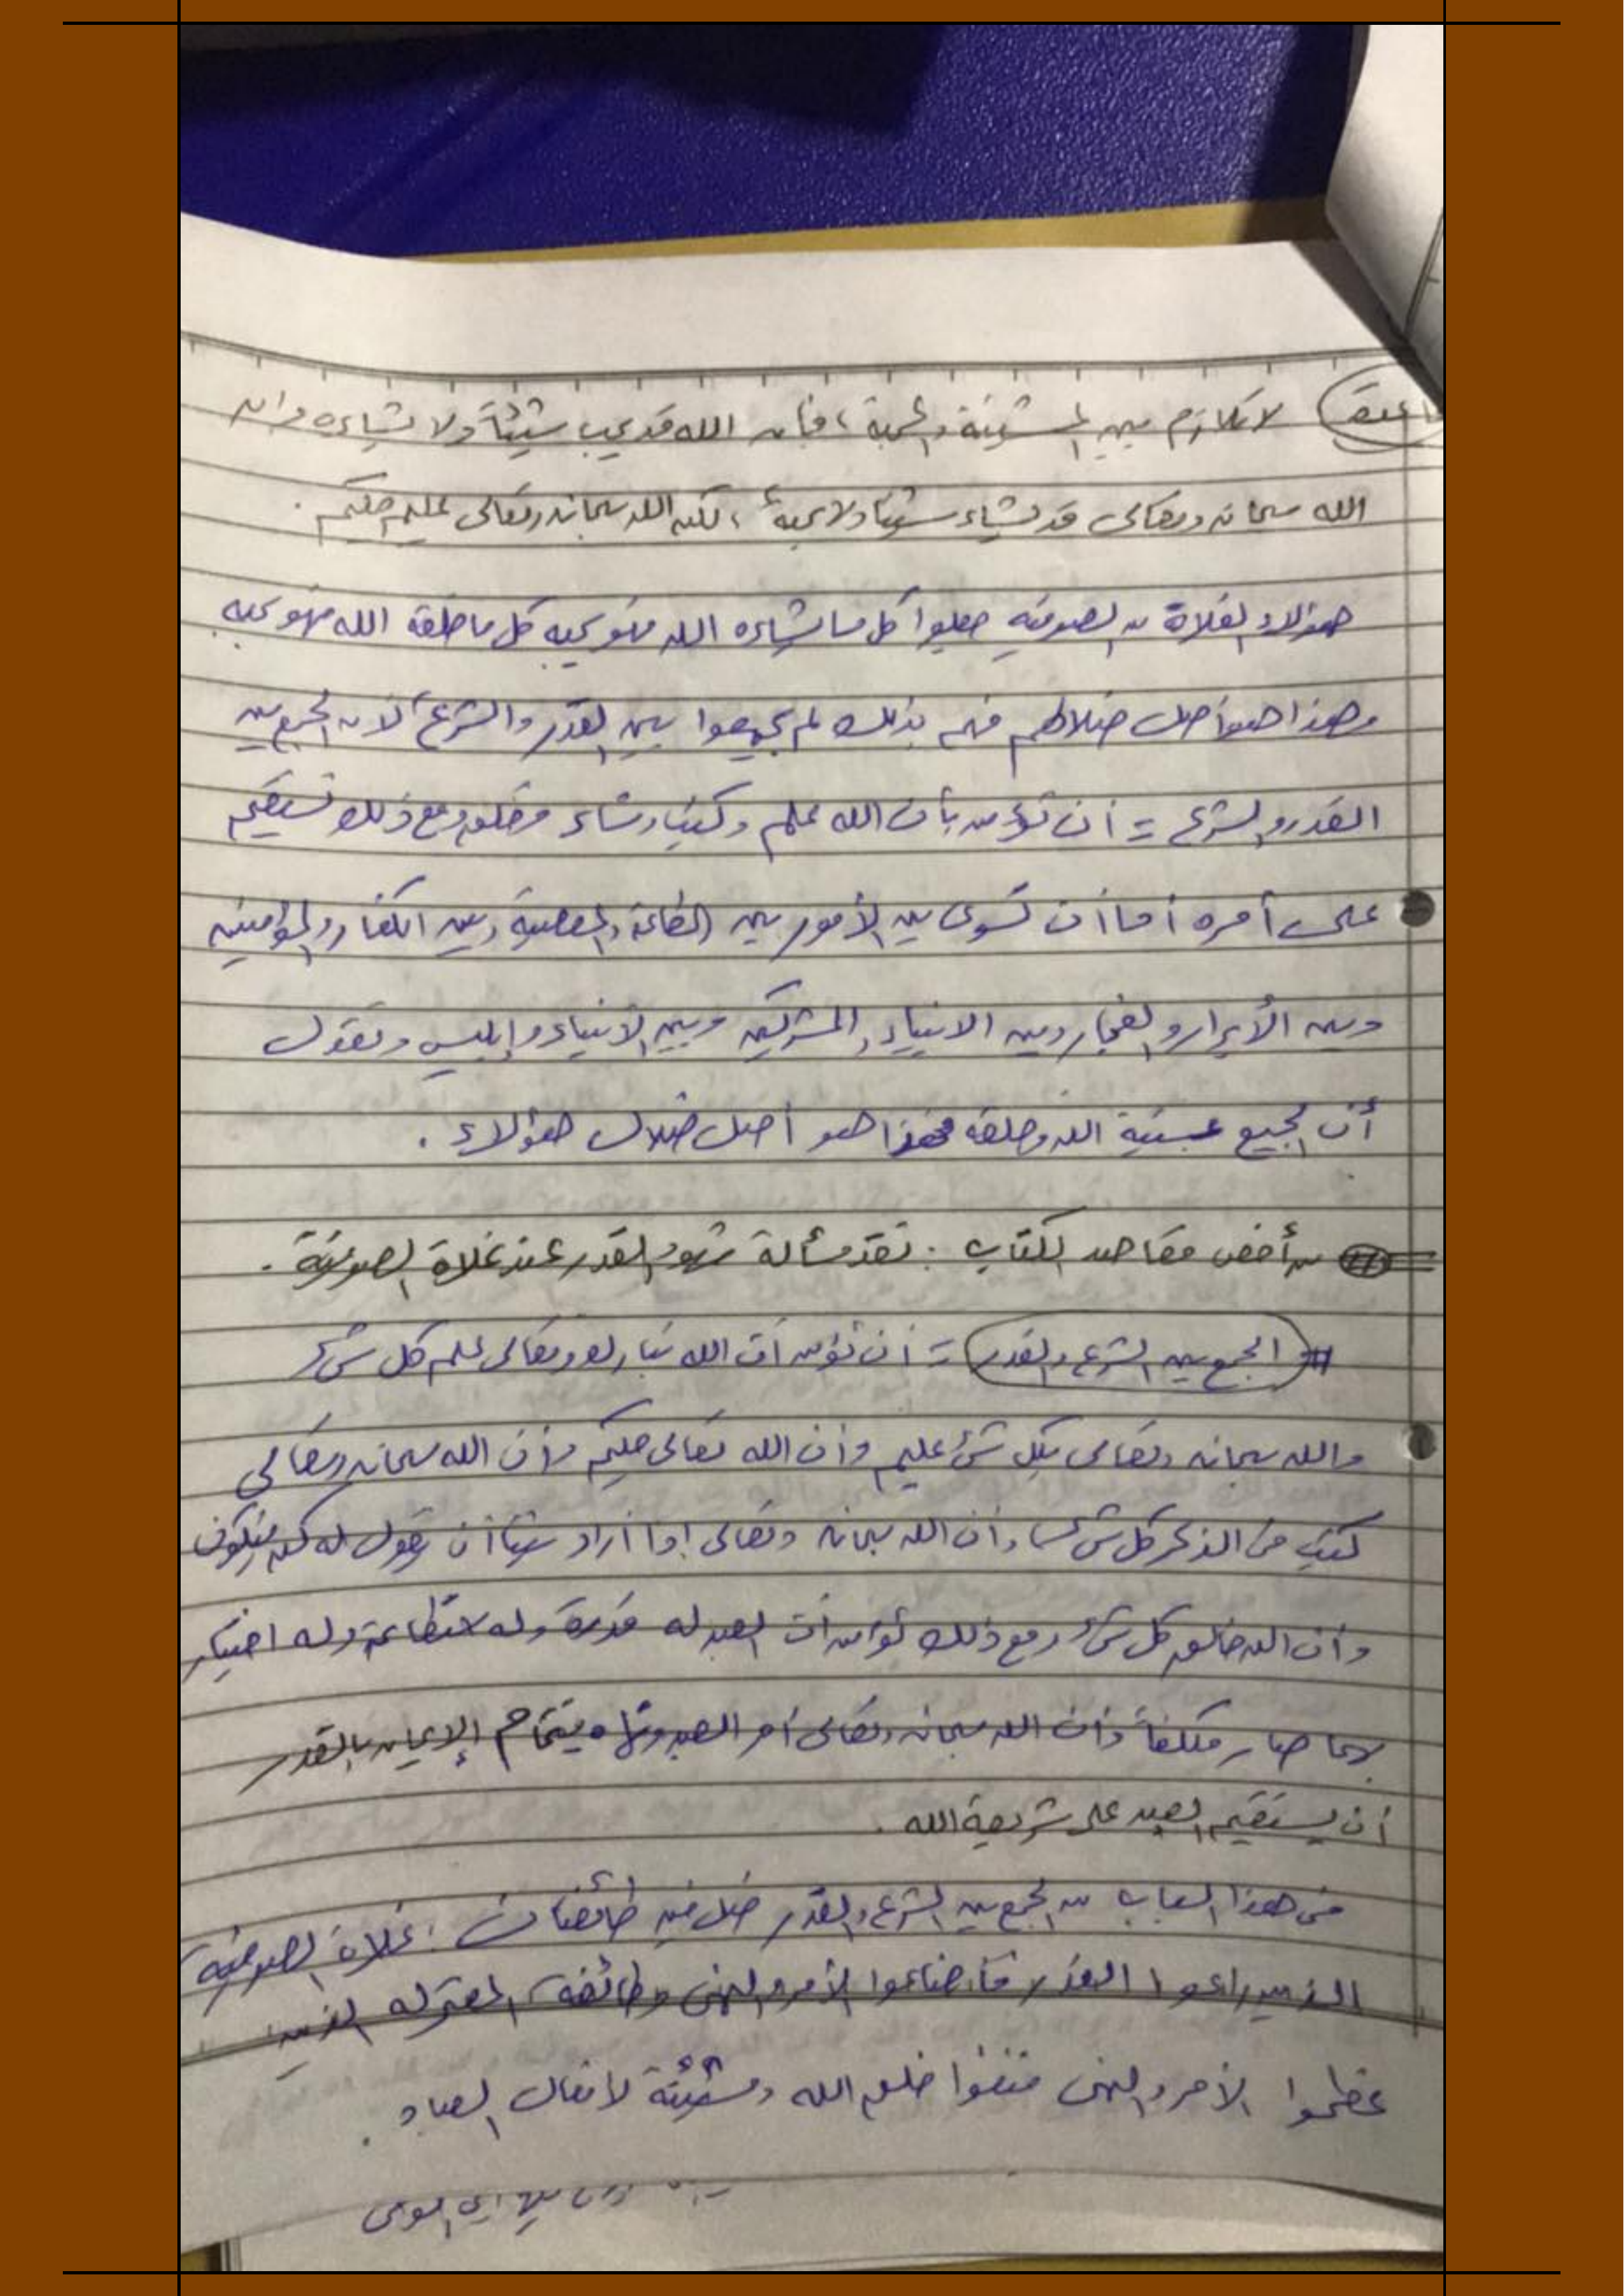 لا تلازم بين المشيئة والمحبة، فإن الله قد يحب شيئاً ولا يشاءه وان
الله سبحانه وتعالى قد يشاء شيئا ولا يحبه، لكن الله سبحانه وتعالى عليم حكيم.
هؤلاء الغلاة من الصوفية جعلوا كل ما شاءه الله فهو يحبه كل ما خلقه الله فهو يحبه
وهذا هو أصل ضلالهم فهم بذلك لم يجمعوا بين القدر والشرع لأن الجمع بين
القدر والشرع = أن تؤمن بأن الله علم وكتب وشاء وخلق ومع ذلك تستقيم
على أمره أما أن تسوى بين الأمور بين الطاعة والمعصية وبين الكفار والمؤمنين
وبين الأبرار والفجار وبين الانبياء والمشركين وبين الأنبياء وإبليس وتقول
أن الجميع بمشيئة الله وخلقه فهذا هو أصل ضلال هؤلاء.
من أخص مقاصد الكتاب: نقد مسألة شهود القدر عند غلاة الصوفية.
# الجمع بين الشرع والقدر = أن تؤمن أن الله تبارك وتعالى علم كل شئ
والله سبحانه وتعالى بكل شئ عليم وأن الله تعالى حكيم وأن الله سبحانه وتعالى
كتب في الذكر كل شئ وأن الله سبحانه وتعالى إذا أراد شيئا أن يقول له كن فيكون
وأن الله خالق كل شئ ومع ذلك تؤمن أن العبد له قدرة وله استطاعة وله اختيار
بها صار مكلفاً وأن الله سبحانه وتعالى أمر العبد ونهاه فتمام الإيمان بالقدر
أن يستقيم العبد على شريعة الله.
في هذا الباب من الجمع بين الشرع والقدر ضل فيه طائفتان: غلاة الصوفية
الذين راعوا القدر فأضاعوا الأمر والنهى وطائفة المعتزله الذين
عظموا الأمر والنهى فنفوا خلق الله ومشيئة لأفعال العباد.